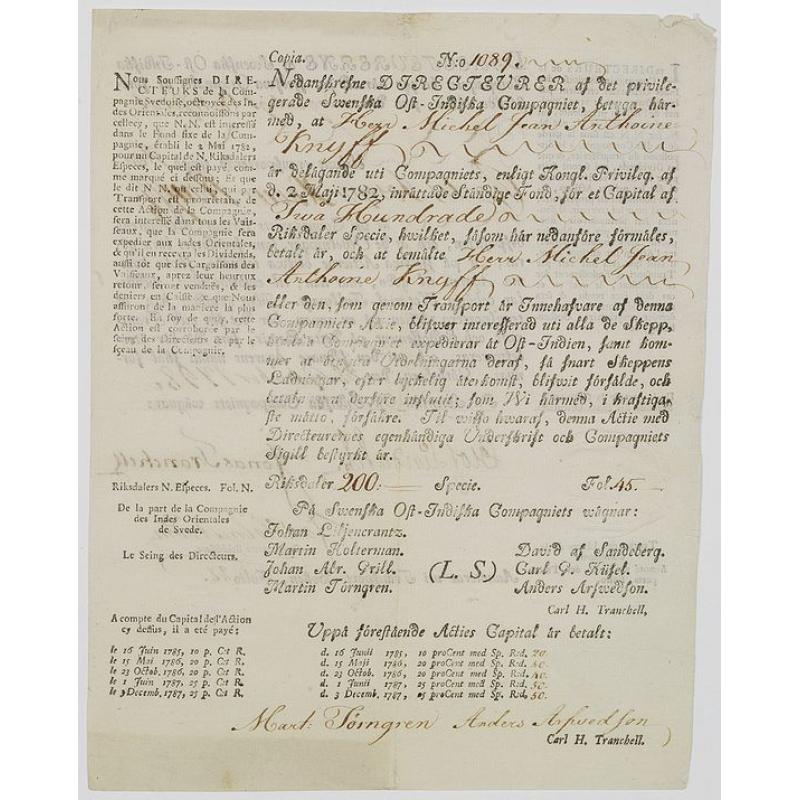 Copia. N:o 1089.
Nous Soussignes DIRE-
CTEURS de la Com-
pagnie Svedoise, octroyée des In-
des Orientales, reconnoissons par
cellecy, que N. N. est interessé
dans le Fond fixe de la Com-
pagnie, établi le 2 Mai 1782,
pour un Capital de N. Riksdalers
Especes, le quel est payé, com-
me marqué ci dessous; Et que
le dit N. N. ou celui, qui par
Transport est proprietaire de
cette Action de la Compagnie,
sera interessé dans tous les Vais-
seaux, que la Compagnie fera
expedier aux Indes Orientales,
& qu'il en recevra les Dividends,
aussi tôt que les Cargaisons des
Vaisseaux, aprez leur heureux
retour, seront vendués, & les
deniers en Caisse; ce que Nous
assurons de la maniere la plus
forte. En foy de quoy, cette
Action est corroborée par le
seing des Directeurs & par le
sçeau de la Compagnie.
Nedanskrefne DIRECTEURER af det privile-
gerade Swenska Ost-Indiska Compagniet, betyga här-
med, at Herr Michel Jean Anthoine
Knyff
är delägande uti Compagniets, enligt Kongl. Privileg. af
d. 2 Maji 1782, inrättade Ständige Fond, för et Capital af
Twå Hundrade
Riksdaler Specie, hwilket, såsom här nedanföre förmäles,
betalt är, och at bemälte Herr Michel Jean
Anthoine Knyff
eller den, som genom Transport är Innehafware af denna
Compagniets Actie, blifwer interesserad uti alla de Skepp,
hwilka Compagniet expedierar åt Ost-Indien, samt kom-
mer at bekomma Utdelningarna deraf, så snart Skeppens
Ladningar, efter lyckelig återkomst, blifwit försålde, och
betaln. derföre influtit; som Wi härmed, i kraftiga-
ste måtto, försäkre. Til wisso hwaraf, denna Actie med
Directeurernes egenhändiga Underskrift och Compagniets
Sigill bestyrkt är.
Riksdalers N. Especes. Fol. N. Riksdaler 200: Specie. Fol. 45.
De la part de la Compagnie
des Indes Orientales
de Svede.
Le Seing des Directeurs.
På Swenska Ost-Indiska Compagniets wägnar:
Johan Liljencrantz.
Martin Holterman. David af Sandeberg.
Johan Abr. Grill. (L. S.) Carl G. Küsel.
Martin Törngren. Anders Arfwedson.
Carl H. Tranchell,
A compte du Capital de l'Action
cy dessus, il a été payé:
le 16 Juin 1785, 10 p. Cᵗ R.
le 15 Mai 1786, 20 p. Cᵗ R.
le 23 Octob. 1786, 20 p. Cᵗ R.
le 1 Juin 1787, 25 p. Cᵗ R.
le 3 Decemb. 1787, 25 p. Cᵗ R.
Uppå förestående Acties Capital är betalt:
d. 16 Junii 1785, 10 proCent med Sp. Rsd. 20.
d. 15 Maji 1786, 20 proCent med Sp. Rsd. 40.
d. 23 Octob. 1786, 20 proCent med Sp. Rsd. 40.
d. 1 Junii 1787, 25 proCent med Sp. Rsd. 50.
d. 3 Decemb. 1787, 25 proCent med Sp. Rsd. 50.
Mart: Törngren Anders Arfwedson
Carl H. Tranchell.